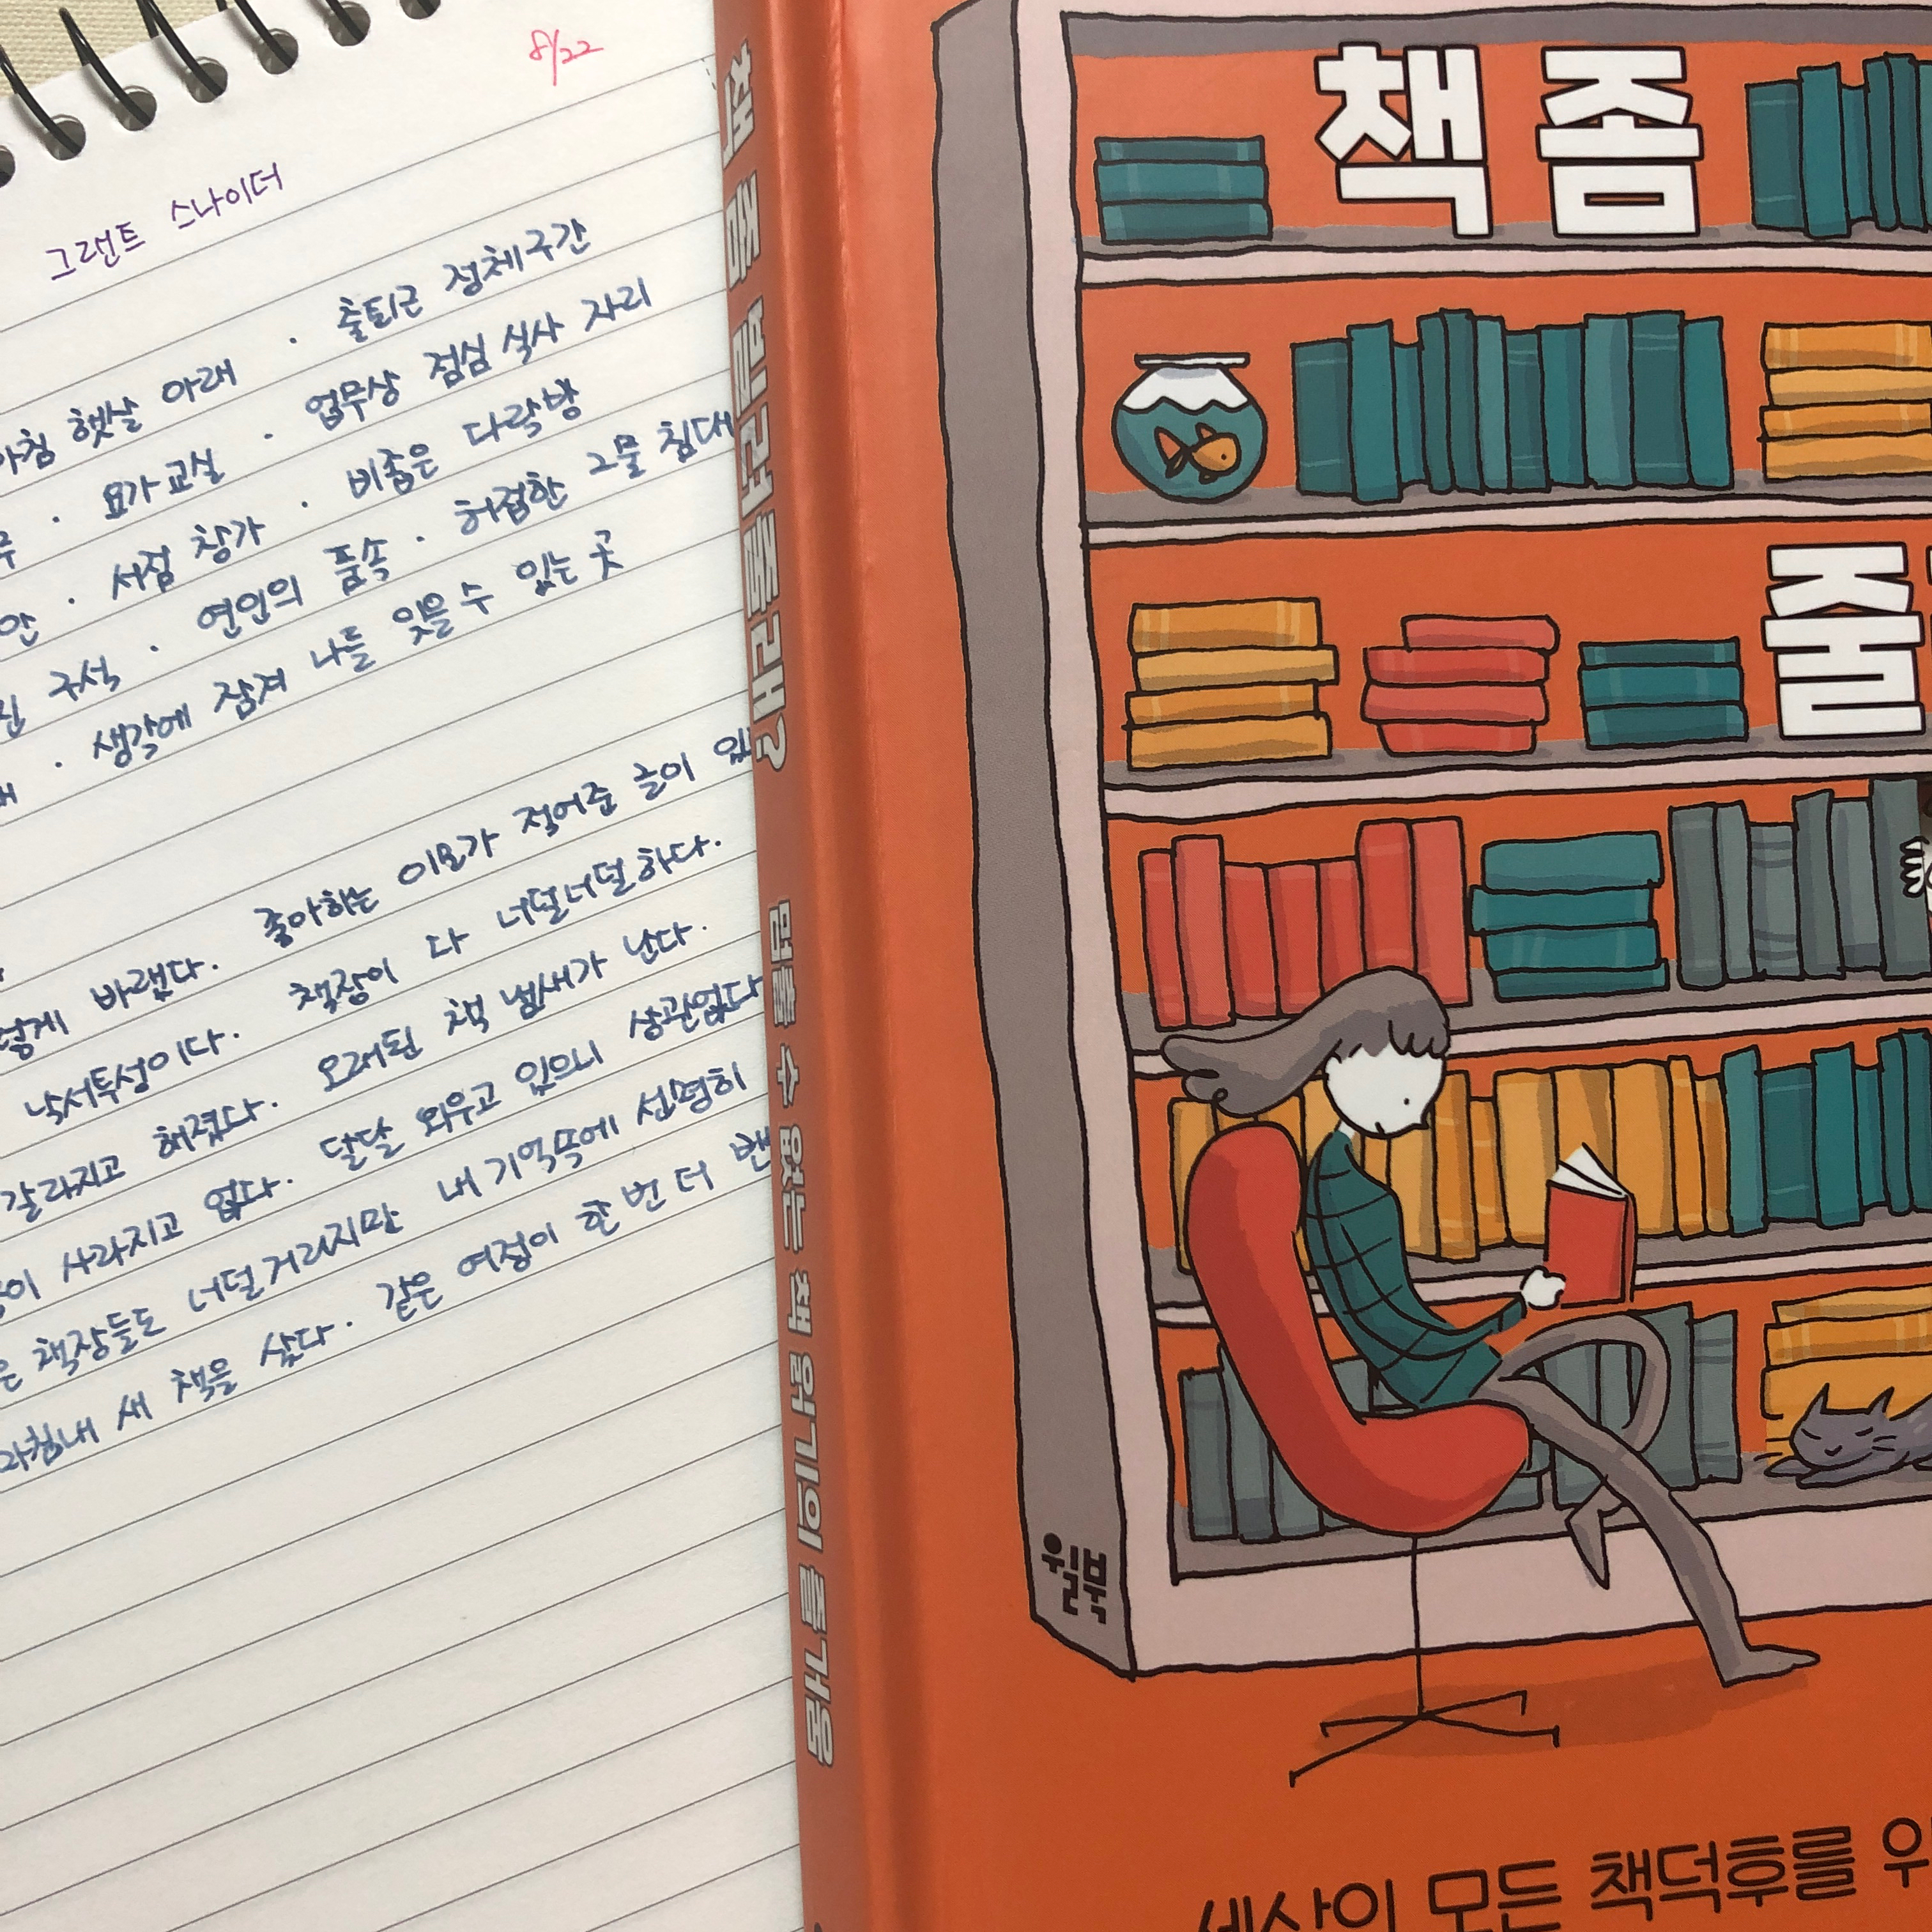 8/22
그랜트 스나이더
아침 햇살 아래 · 출퇴근 정체구간
· 요가교실 · 업무상 점심 식사 자리
안 · 서점 창가 · 비좁은 다락방
구석 · 연인의 품속 · 허접한 그물 침대
· 생각에 잠겨 나를 잊을 수 있는 곳
바랬다. 좋아하는 이모가 적어준 글이
낙서투성이다. 책장이 다 너덜너덜하다.
갈라지고 해졌다. 오래된 책 냄새가 난다.
사라지고 없다. 달달 외우고 있으니 상관없다
책장들도 너덜거리지만 내 기억속에 선명히
마침내 새 책을 샀다. 같은 여정이 한 번 더
책 좀 빌려줄래?
멈출 수 없는 책 읽기의 즐거움
책 좀
줄
윌북
세상의 모든 책덕후를